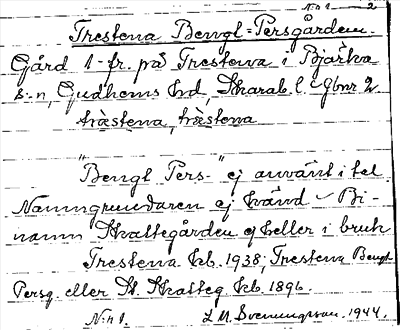 N:o 1 — 2
Trestena Bengt-Persgården.
Gård 1-fr. på Trestena i Bjärka
s-n, Gudhems hd, Skarab. l. Gbnr 2.
träs̀tena, träs̀tena
"Bengt Pers-" ej använt i tal
Namngrundaren ej känd – Bi-
namn Skattegården ej heller i bruk
Trestena kb. 1938; Trestena Bengt
Persg. eller St. Skatteg. kb. 1896.
N:o 1. L. M. Svenungsson. 1944.